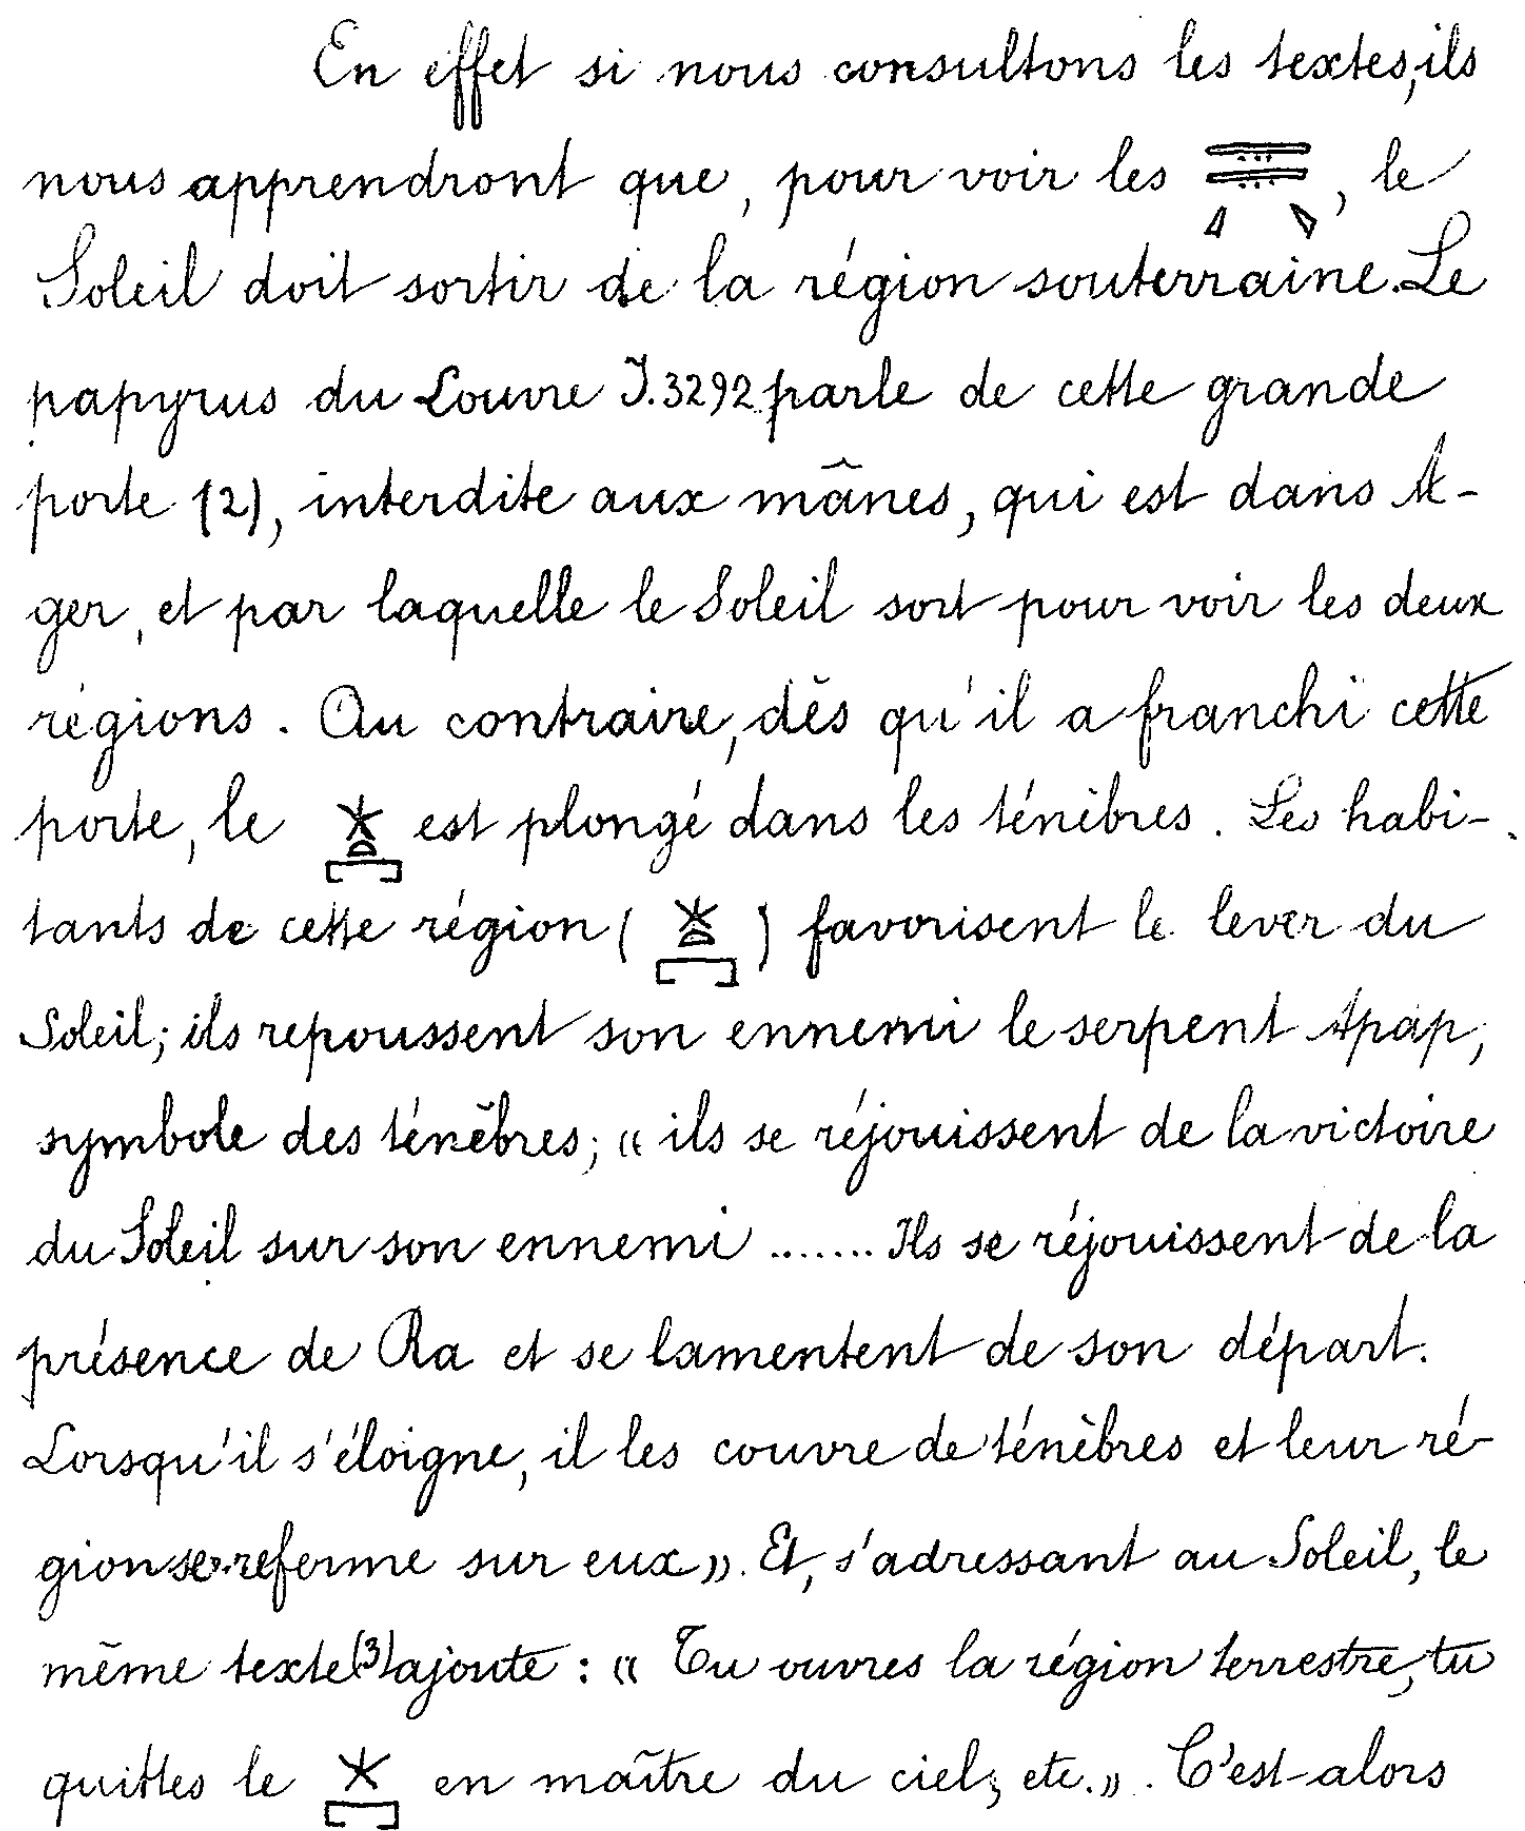 En effet si nous consultons les textes, ils
nous apprendront que, pour voir les 𓇿𓇿, le
Soleil doit sortir de la région souterraine. Le
papyrus du Louvre I.3292 parle de cette grande
porte (2), interdite aux mânes, qui est dans A-
ger, et par laquelle le Soleil sort pour voir les deux
régions. Au contraire, dès qu'il a franchi cette
porte, le 𓇼𓏏𓉐 est plongé dans les ténèbres. Les habi-
tants de cette région (𓇼𓏏𓉐) favorisent le lever du
Soleil; ils repoussent son ennemi le serpent Apap,
symbole des ténèbres; « ils se réjouissent de la victoire
du Soleil sur son ennemi ....... Ils se réjouissent de la
présence de Ra et se lamentent de son départ.
Lorsqu'il s'éloigne, il les couvre de ténèbres et leur ré-
gion se referme sur eux ». Et, s'adressant au Soleil, le
même texte (3) ajoute : « Tu ouvres la région terrestre, tu
quittes le 𓇼𓉐 en maître du ciel, etc. ». C'est alors